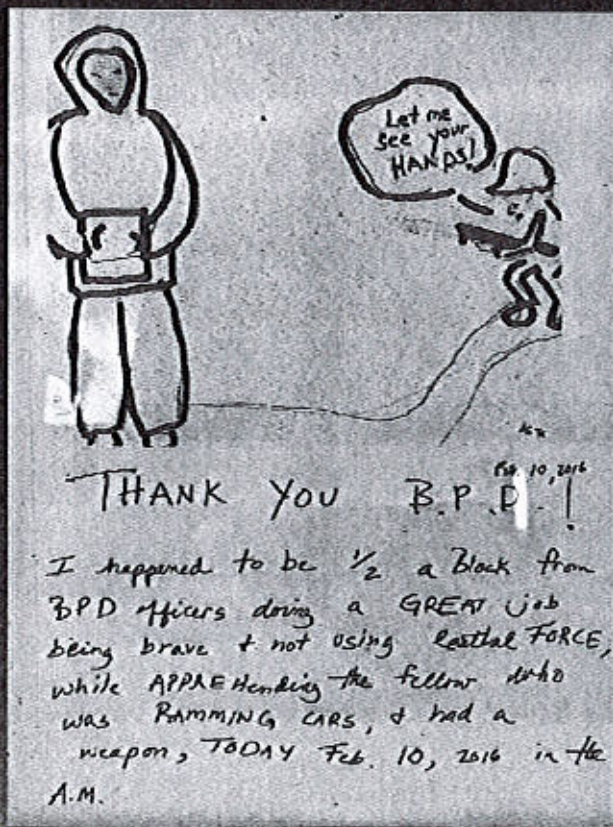 Let me
see your
HANDS!
Feb. 10, 2016
THANK YOU B.P.D.!
I happened to be 1/2 a Block from
BPD officers doing a GREAT job
being brave & not using leathal FORCE,
while APPREHending the fellow who
was RAMMING CARS, & had a
weapon, TODAY Feb. 10, 2016 in the
A.M.